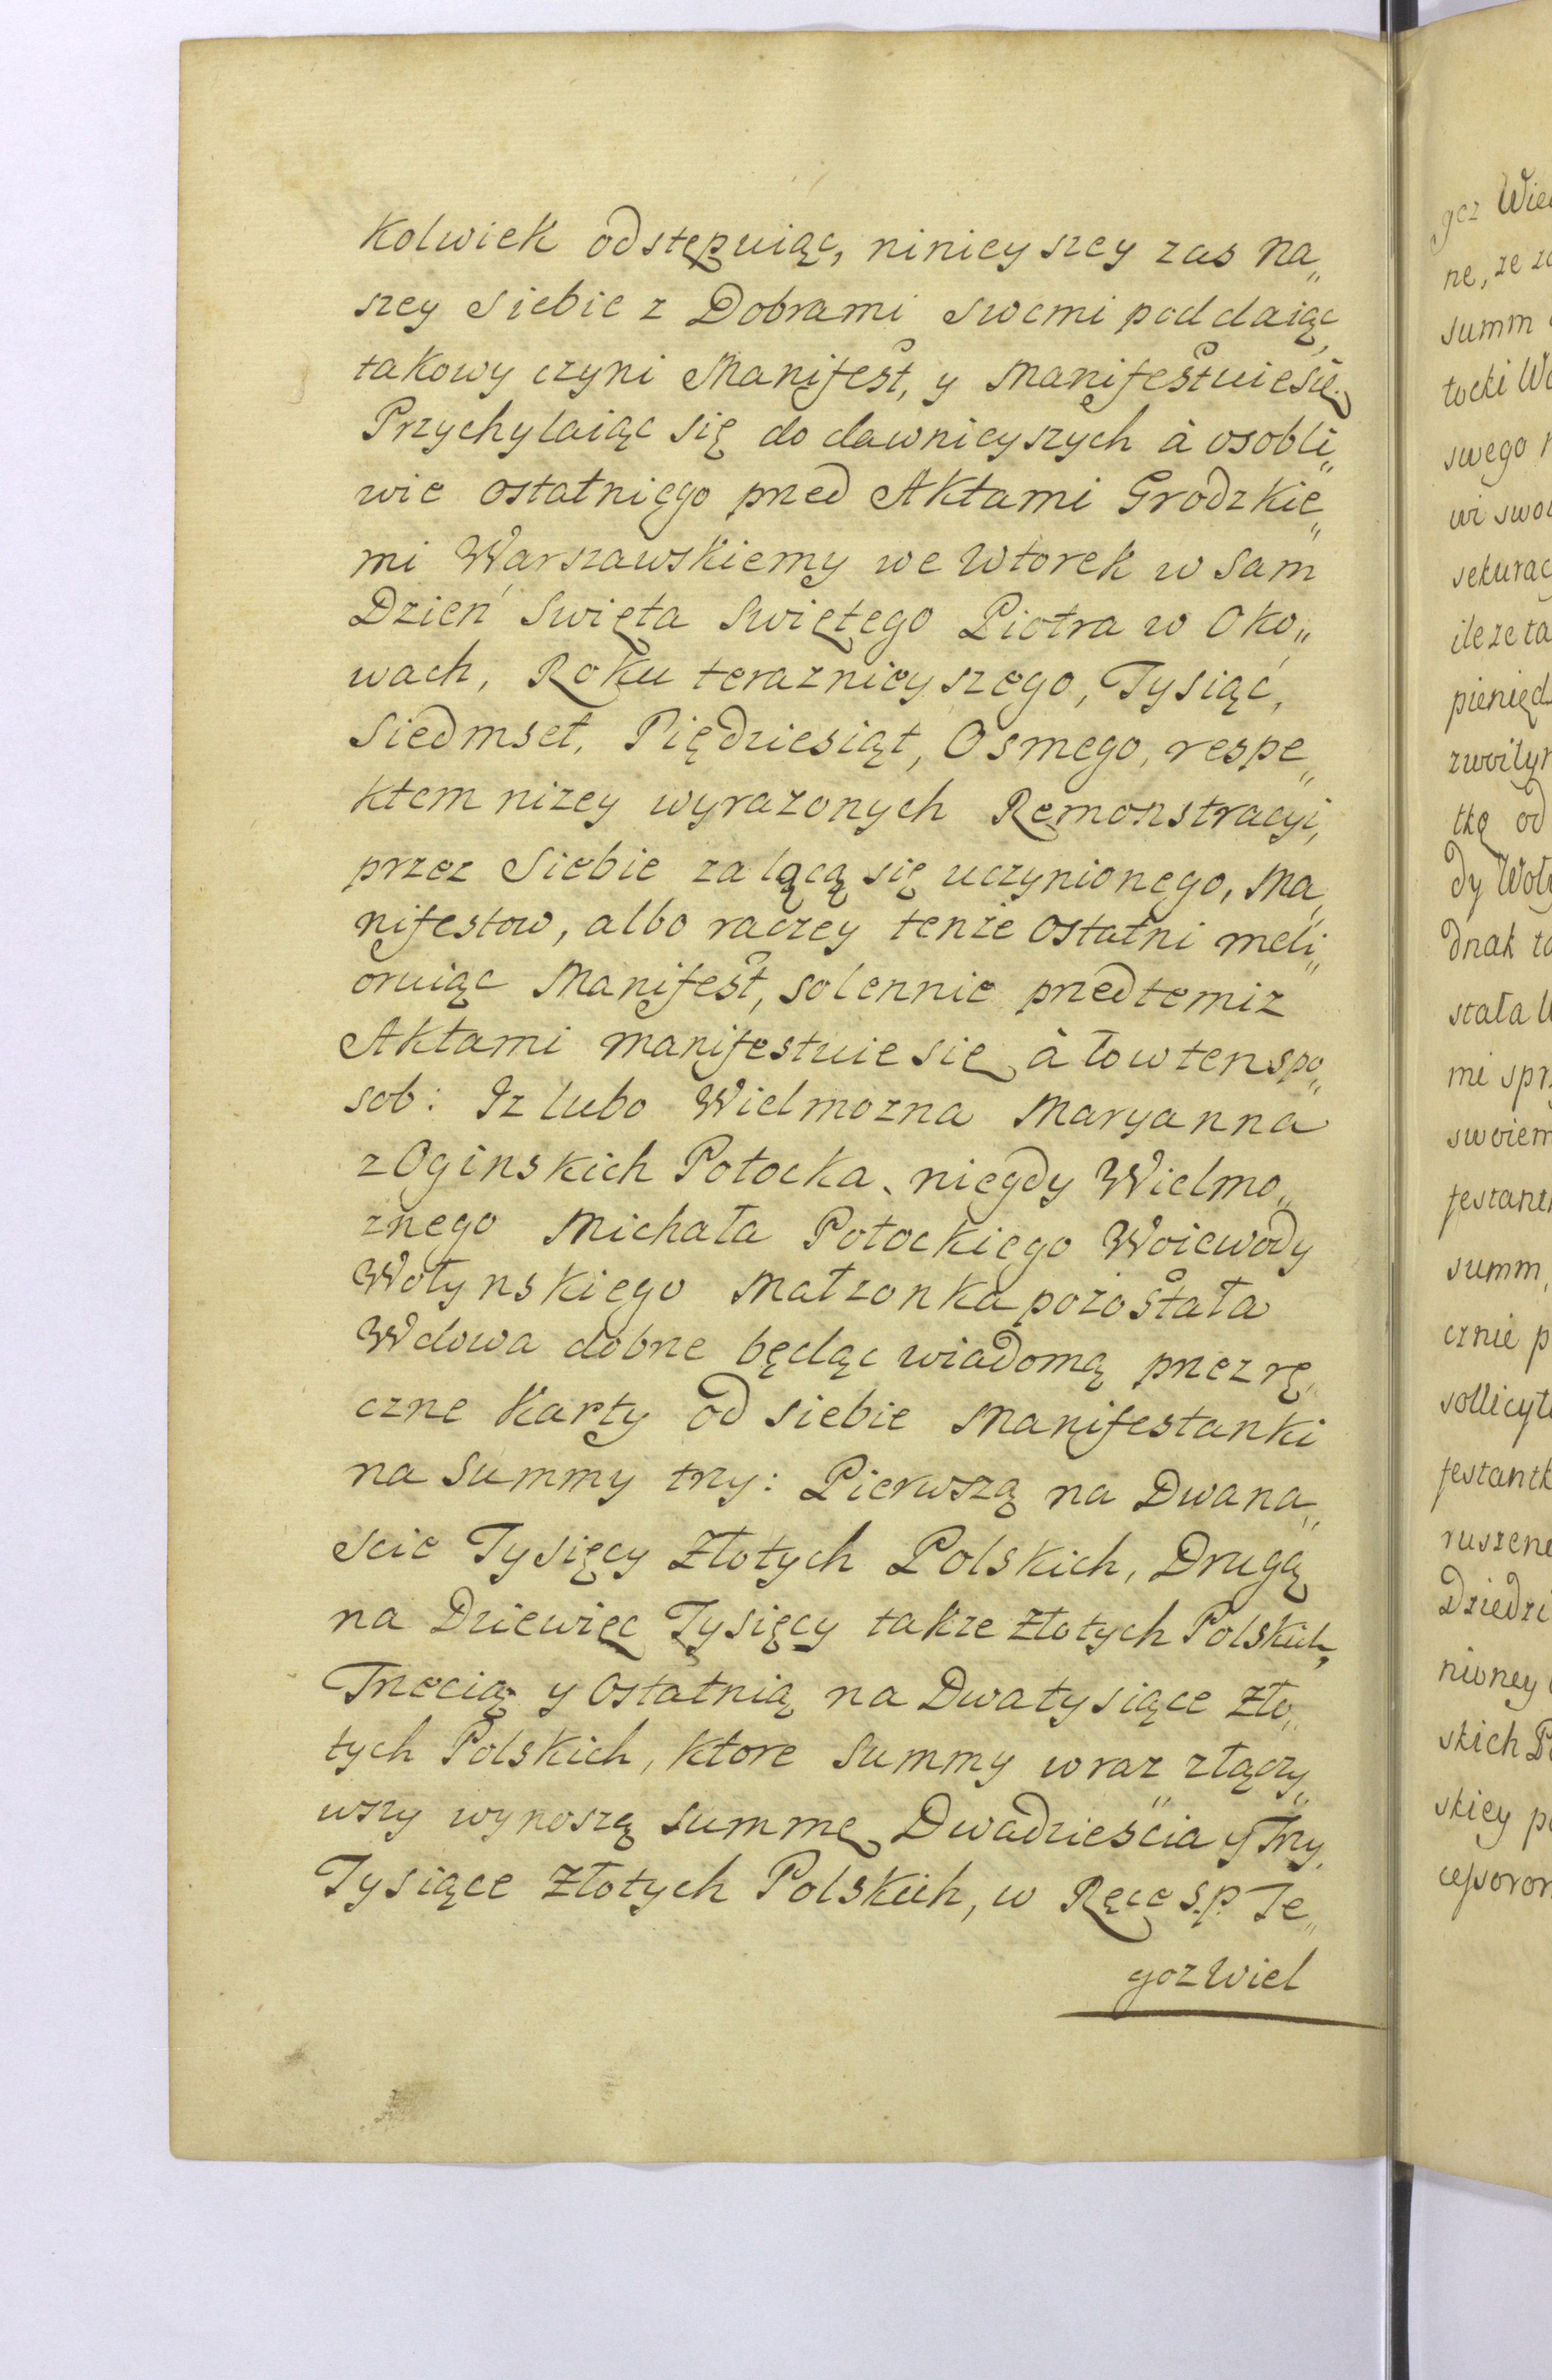 Kolwiek odstępuiąc, ninieyszey zas na„
szey Siebie z Dobrami swemi poddaiąc,
takowy czyni Manifest, y Manifestuie się.
Przychylaiąc się do dawnieyszych à osobli„
wie ostatniego przed Aktami Grodzkie„
mi Warszawskiemy we Wtorek w Sam
Dzień Swięta Swiętego Piotra w Oko„
wach, Roku teraznieyszego, Tysiąc,
Siedmset, Piędziesiąt, Osmego, respe„
ktem nizey wyrazonych Remonstracyi,
przez Siebie zalącą się uczynionego, Ma„
nifestow, albo raczey tenże ostatni meli„
oruiąc Manifest, solennie przed temiz
Aktami manifestuie się à to w ten spo„
sob: Iz lubo Wielmozna Maryanna
z Oginskich Potocka niegdy Wielmo„
znego Michała Potockiego Woiewody
Wołynskiego Małzonka pozostała
Wdowa dobrze będąc wiadomą przez rę„
czne Karty od siebie Manifestanki
na Summy trzy: Pierwszą na Dwana„
scie Tysięcy Złotych Polskich, Drugą
na Dziewięc Tysięcy takze Złotych Polskich,
Trzecią y Ostatnią na Dwa tysiące Zło„
tych Polskich, ktore Summy wraz złączy„
wszy wynoszą Summę Dwadzieścia y Trzy
Tysiące Złotych Polskich, w Ręce S.p. Te„
goz Wiel
gcz Wie
ne, ze za
summ
tocki Wo
swego
wi swoi
sekurac
ile ze ta
pienięd
zwoity
tkę od
dy Woł
dnak ta
stała
mi spr
swoiem
festan
summ,
cznie p
sollicyt
festantk
ruszene
Dziedzi
nioney
skich P
skiey p